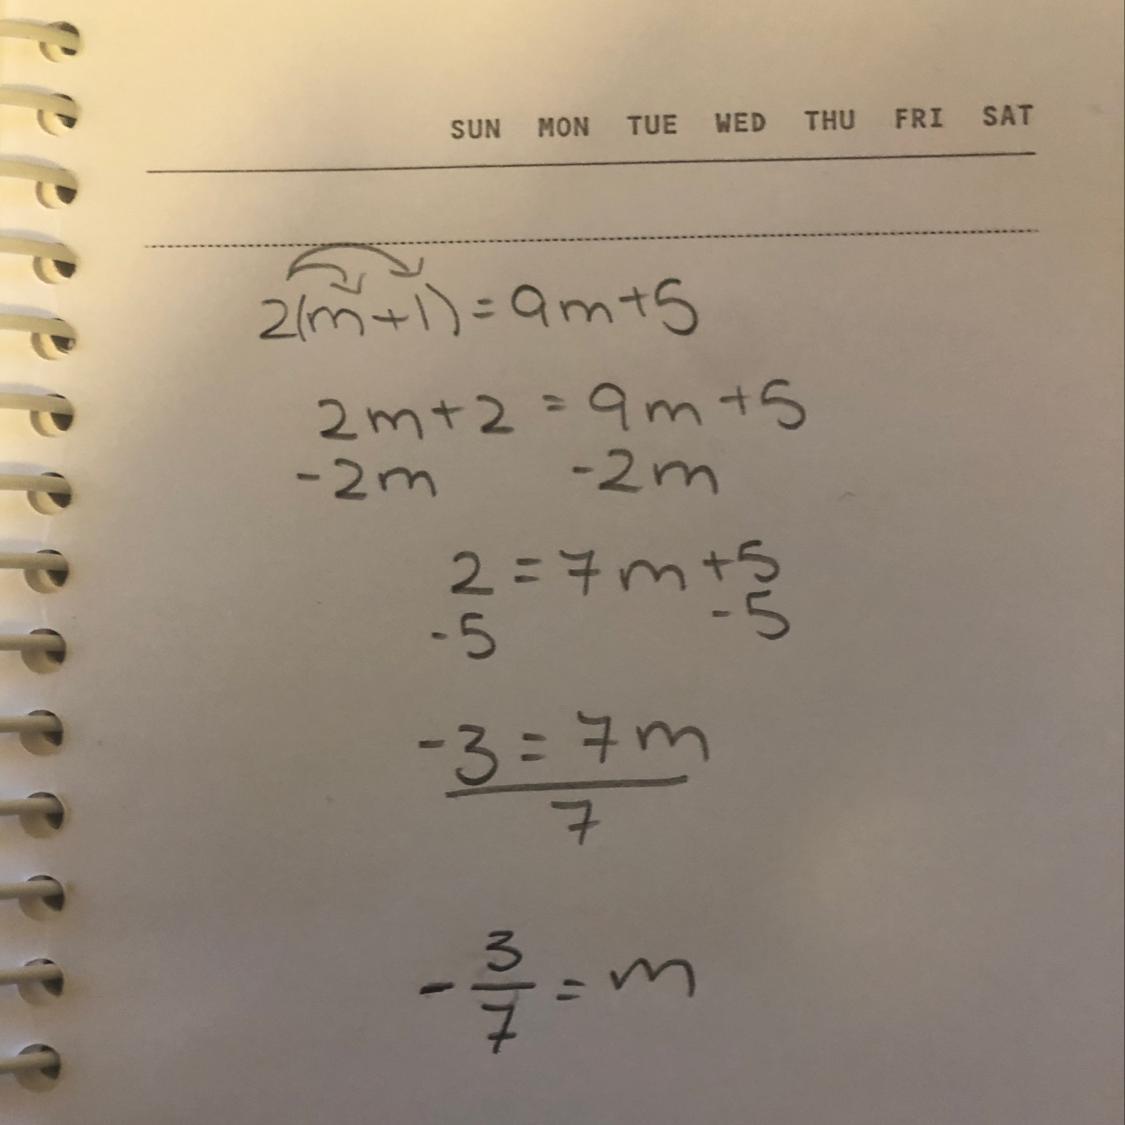 SUN MON TUE WED THU FRI SAT
2(m+1)=9m+5
2m+2 = 9m+5
-2m -2m
2 = 7m+5
-5 -5
-3 = 7m
7
-3/7 = m